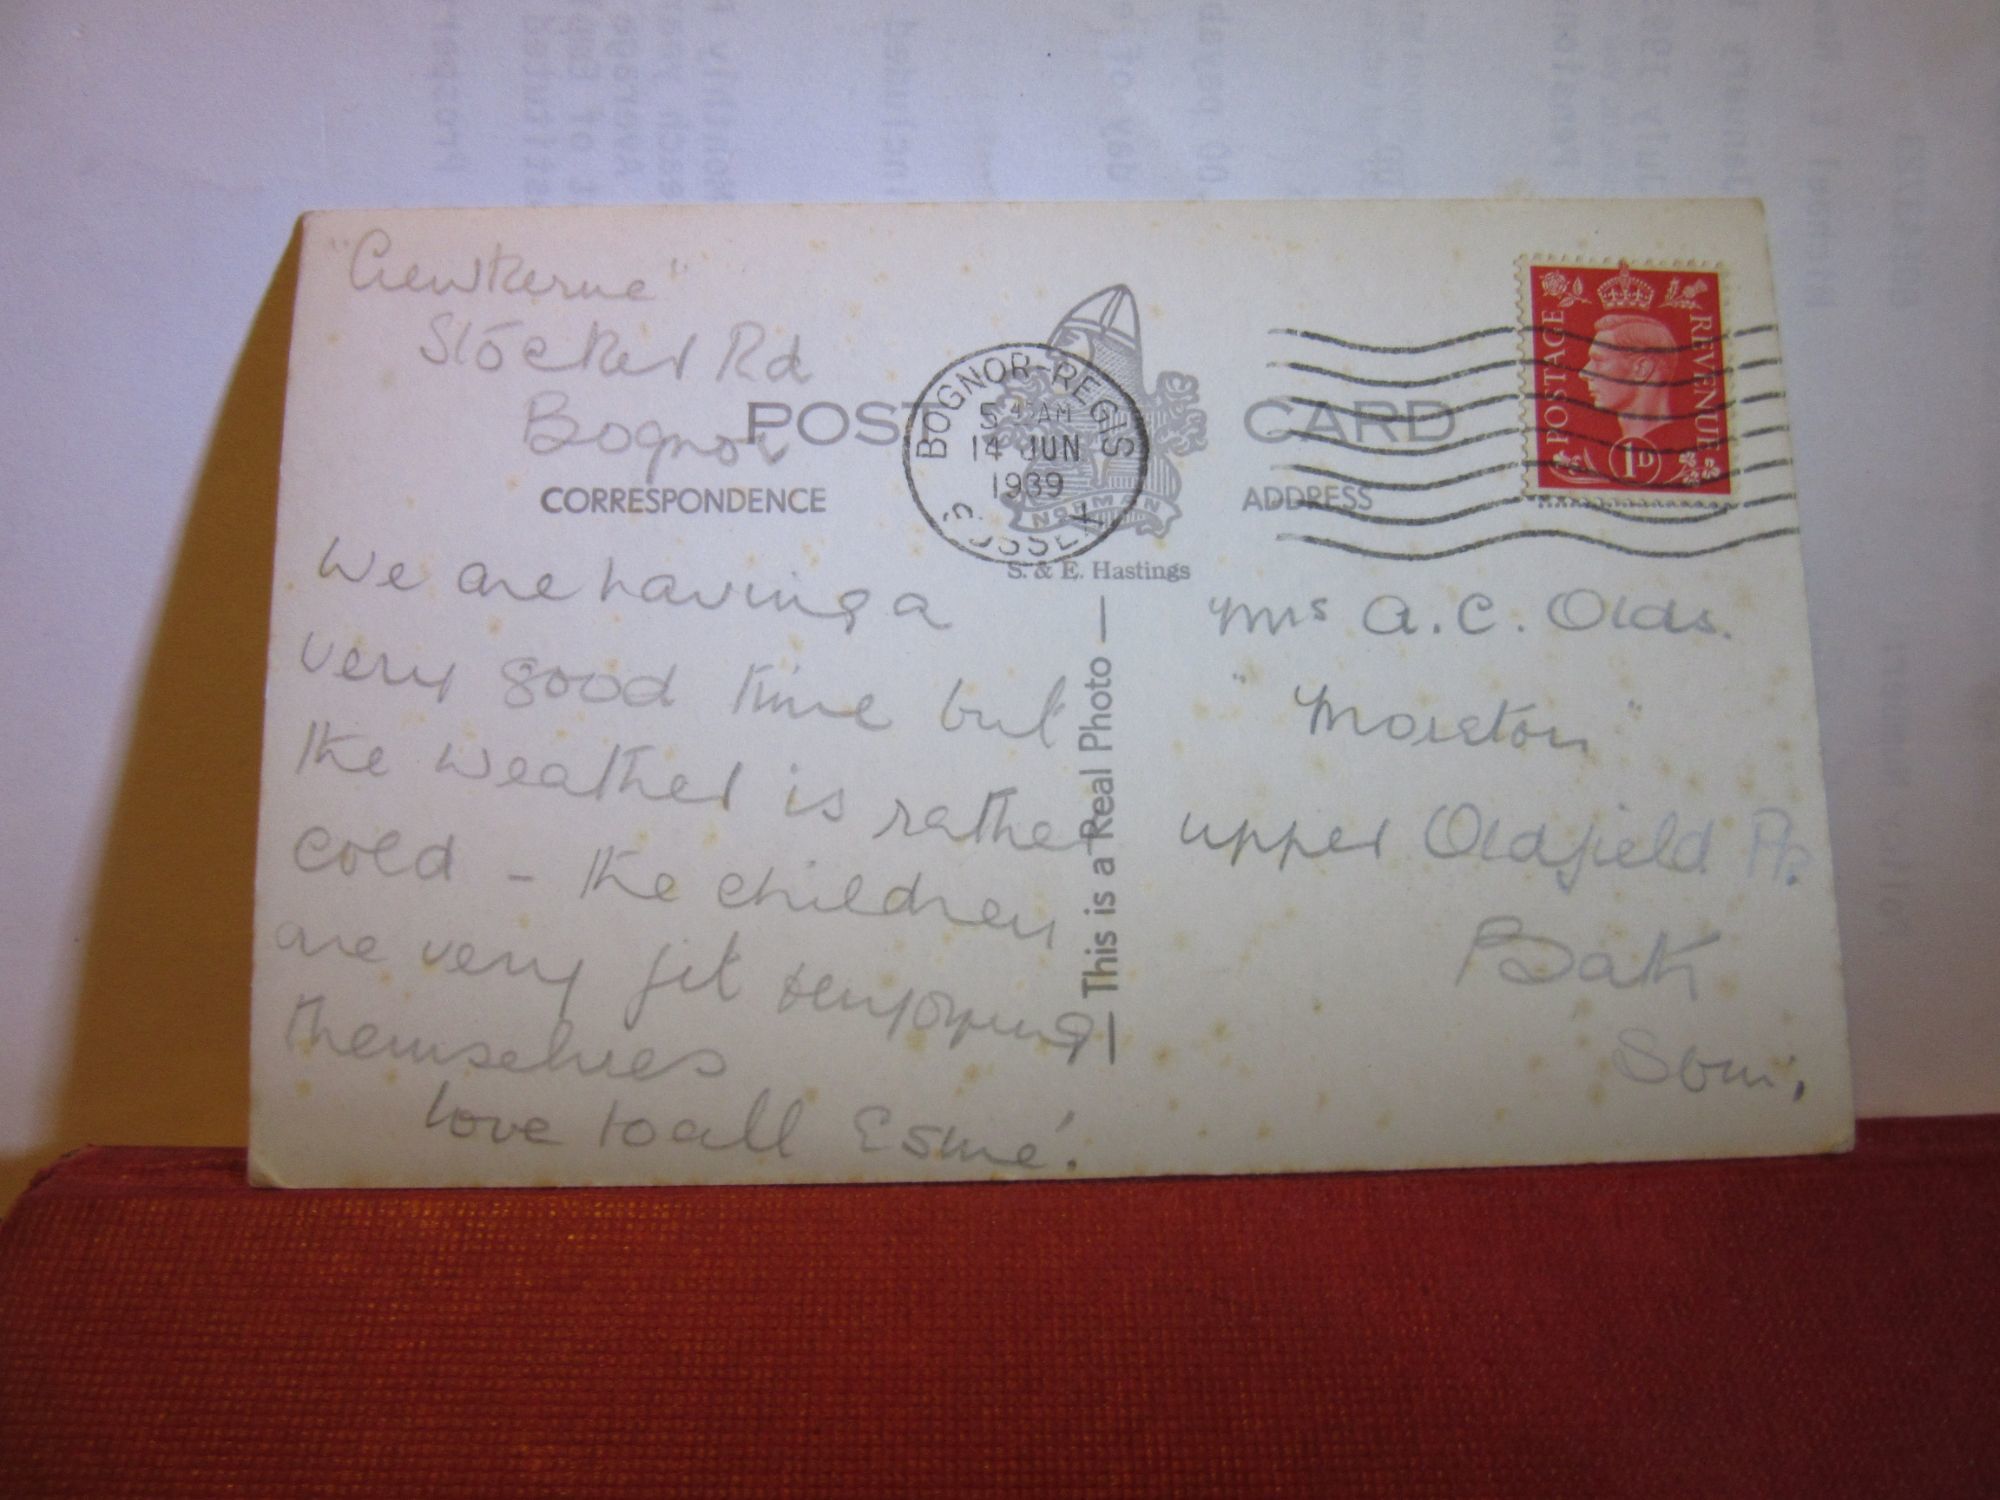 "Crewkerne"
Stocker Rd
Bognor
POST CARD
CORRESPONDENCE
ADDRESS
BOGNOR-REGIS
5 45 AM
14 JUN
1939
SUSSEX
NORMAN
S. & E. Hastings
POSTAGE
REVENUE
1D
We are having a
very good time but
the weather is rather
cold - the children
are very fit & enjoying
themselves
love to all Esmé.
This is a Real Photo
Mrs A.C. Olds.
"Moreton"
upper Oldfield Pk
Bath
Som.